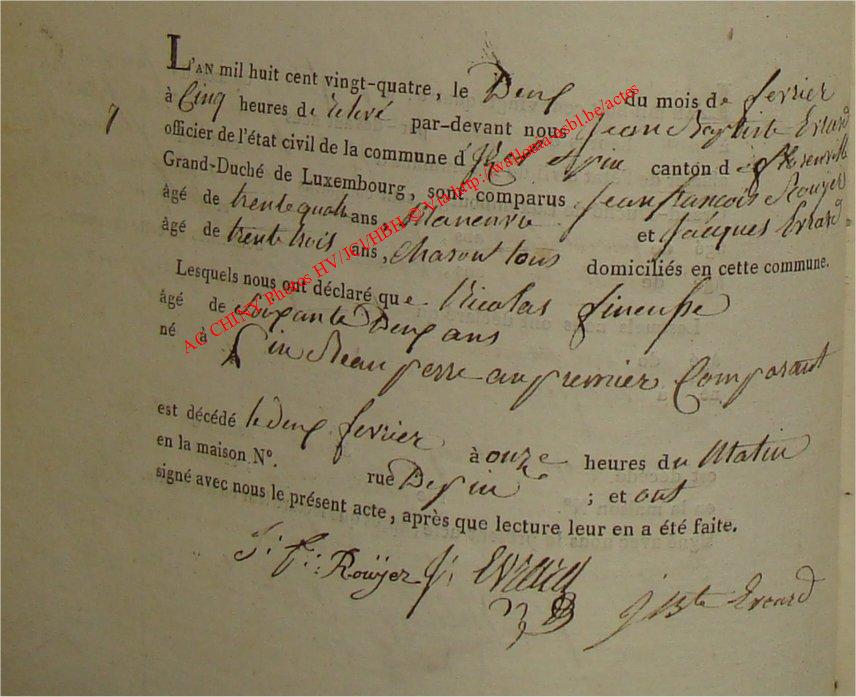 L'AN mil huit cent vingt-quatre, le Deux du mois de fevrier
7
à Cinq heures de relevé par-devant nous Jean Baptiste Evrard
officier de l'état civil de la commune d' canton de florenville
Grand-Duché de Luxembourg, sont comparus Jean francois Rouyer
âgé de trente quatre ans, Maneuvre et Jacques Evrard
âgé de trente trois ans, Charon tous domiciliés en cette commune.
Lesquels nous ont déclaré que Nicolas
âgé de Soixante Deux ans
né à pin Beau perre au premier Comparant
est décédé le deux fevrier à onze heures du Matin
en la maison N°. rue De pin ; et ont
signé avec nous le présent acte, après que lecture leur en a été faite.
J: f: Roüyer J: Evrard
J Bte Evrard
AC CHINY Photos HV/JCl/HBH © via http://wallonia-asbl.be/actes